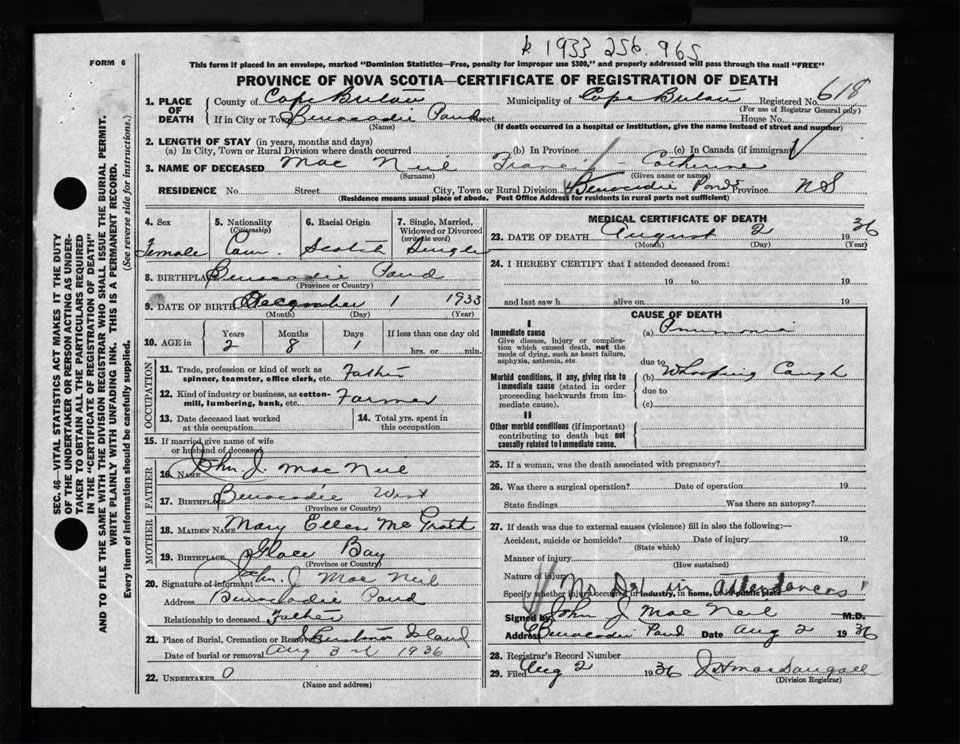 k 1933 256. 965
FORM 6
This form if placed in an envelope, marked "Dominion Statistics—Free, penalty for improper use $300," and properly addressed will pass through the mail "FREE"
PROVINCE OF NOVA SCOTIA—CERTIFICATE OF REGISTRATION OF DEATH
SEC. 46—VITAL STATISTICS ACT MAKES IT THE DUTY
OF THE UNDERTAKER OR PERSON ACTING AS UNDER-
TAKER TO OBTAIN ALL THE PARTICULARS REQUIRED
IN THE "CERTIFICATE OF REGISTRATION OF DEATH"
AND TO FILE THE SAME WITH THE DIVISION REGISTRAR WHO SHALL ISSUE THE BURIAL PERMIT.
WRITE PLAINLY WITH UNFADING INK. THIS IS A PERMANENT RECORD.
Every item of information should be carefully supplied. (See reverse side for instructions.)
1. PLACE OF DEATH County of Cape Breton Municipality of Cape Breton Registered No. 618
(For use of Registrar General only)
If in City or Town Benacadie Pond Street House No.
(Name) (If death occurred in a hospital or institution, give the name instead of street and number)
2. LENGTH OF STAY (in years, months and days)
(a) In City, Town or Rural Division where death occurred (b) In Province (c) In Canada (if immigrant)
3. NAME OF DECEASED Mac Neil Francis Catherine
(Surname) (Given name or names)
RESIDENCE No. Street City, Town or Rural Division Benacadie Pond Province N S
(Residence means usual place of abode. Post Office Address for residents in rural parts not sufficient)
4. Sex Female
5. Nationality (Citizenship) Can.
6. Racial Origin Scotch
7. Single, Married, Widowed or Divorced (write the word) Single
8. BIRTHPLACE Benacadie Pond
(Province or Country)
9. DATE OF BIRTH December 1 1933
(Month) (Day) (Year)
10. AGE in Years 2 Months 8 Days 1 If less than one day old
hrs. or min.
OCCUPATION
11. Trade, profession or kind of work as spinner, teamster, office clerk, etc. Father
12. Kind of industry or business, as cotton-mill, lumbering, bank, etc. Farmer
13. Date deceased last worked at this occupation
14. Total yrs. spent in this occupation
15. If married give name of wife or husband of deceased
FATHER
16. NAME John J. Mac Neil
17. BIRTHPLACE Benacadie West
(Province or Country)
MOTHER
18. MAIDEN NAME Mary Ellen Mc Gratt
19. BIRTHPLACE Glace Bay
(Province or Country)
20. Signature of informant John. J Mac Neil
Address Benacadie Pond
Relationship to deceased Father
21. Place of Burial, Cremation or Removal Island
Date of burial or removal Aug 3rd 1936
22. UNDERTAKER 0
(Name and address)
MEDICAL CERTIFICATE OF DEATH
23. DATE OF DEATH August 2 1936
(Month) (Day) (Year)
24. I HEREBY CERTIFY that I attended deceased from:
19 to 19
and last saw h alive on 19
CAUSE OF DEATH
I
Immediate cause (a) Pneumonia
Give disease, injury or complication which caused death, not the mode of dying, such as heart failure, asphyxia, asthenia, etc.
due to
Morbid conditions, if any, giving rise to immediate cause (stated in order proceeding backwards from immediate cause). (b) Whooping Caugh
due to
(c)
II
Other morbid conditions (if important) contributing to death but not causally related to immediate cause.
25. If a woman, was the death associated with pregnancy?
26. Was there a surgical operation? Date of operation 19
State findings Was there an autopsy?
27. If death was due to external causes (violence) fill in also the following:—
Accident, suicide or homicide? Date of injury 19
(State which)
Manner of injury
(How sustained)
Nature of injury
Specify whether injury occurred in industry, in home, or in public place
No Dr in attendance
Signed by John J MacNeil M.D.
Address Benacadie Pond Date Aug 2 1936
28. Registrar's Record Number
29. Filed Aug 2 1936 MacDougall
(Division Registrar)